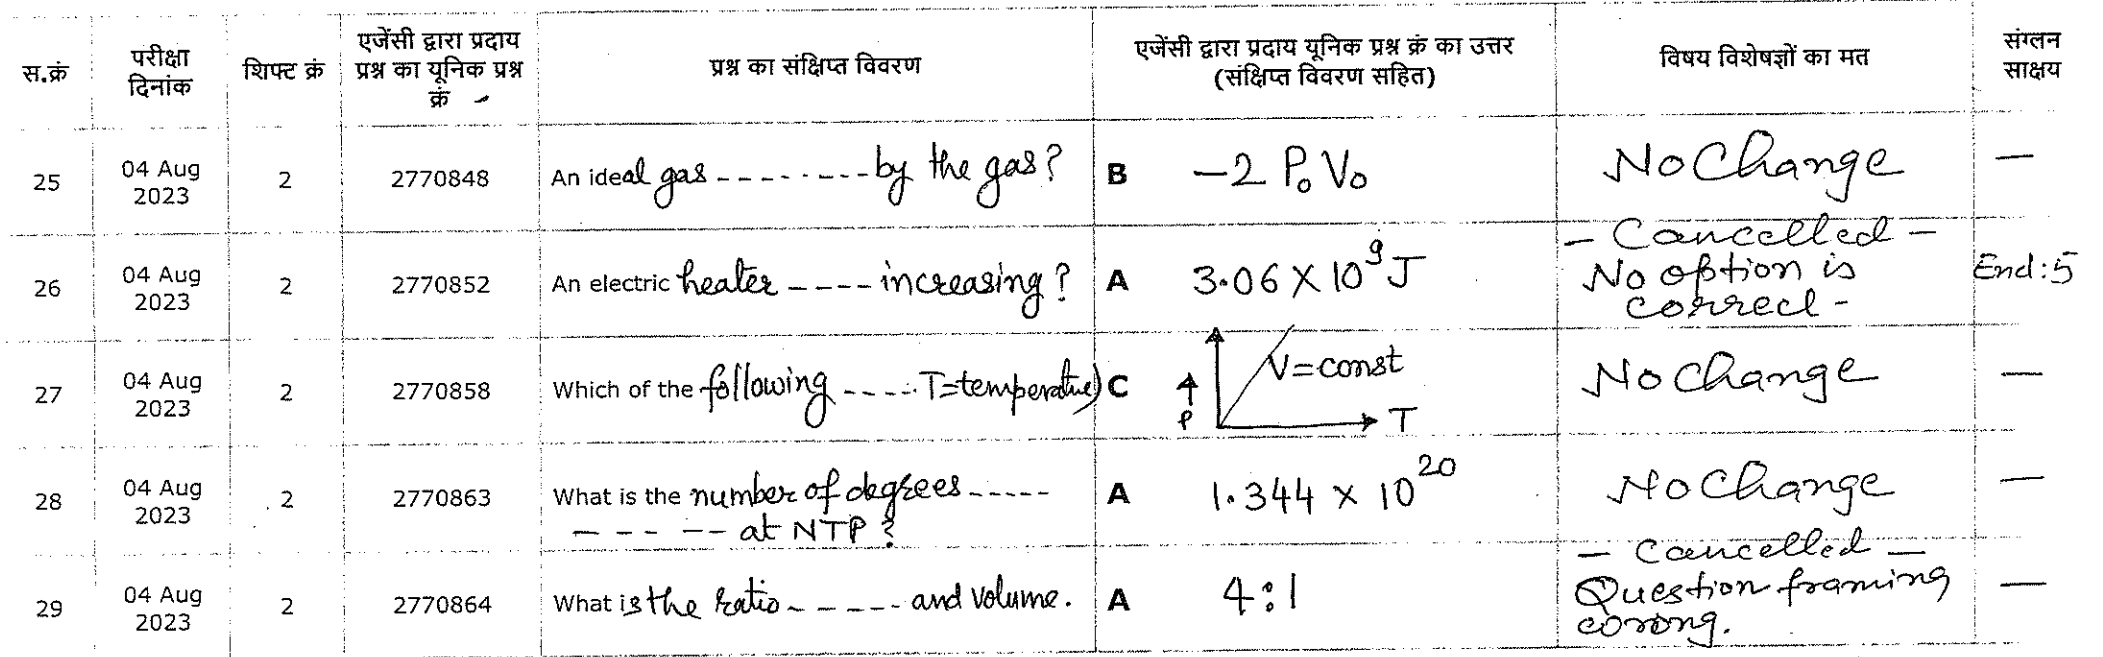 स.क्रं परीक्षा दिनांक शिफ्ट क्रं एजेंसी द्वारा प्रदाय प्रश्न का यूनिक प्रश्न क्रं प्रश्न का संक्षिप्त विवरण एजेंसी द्वारा प्रदाय यूनिक प्रश्न क्रं का उत्तर (संक्षिप्त विवरण सहित) विषय विशेषज्ञों का मत संग्लन साक्षय
25 04 Aug 2023 2 2770848 An ideal gas -------- by the gas? B -2 P₀ V₀ No Change —
26 04 Aug 2023 2 2770852 An electric heater ---- increasing? A 3.06 X 10⁹ J - Cancelled - No option is correct - End:5
27 04 Aug 2023 2 2770858 Which of the following ----- T=temperature) C P V=const T No Change —
28 04 Aug 2023 2 2770863 What is the number of degrees ----- ----- at NTP? A 1.344 x 10²⁰ No Change —
29 04 Aug 2023 2 2770864 What is the ratio ----- and volume. A 4:1 - Cancelled - Question framing worong. —